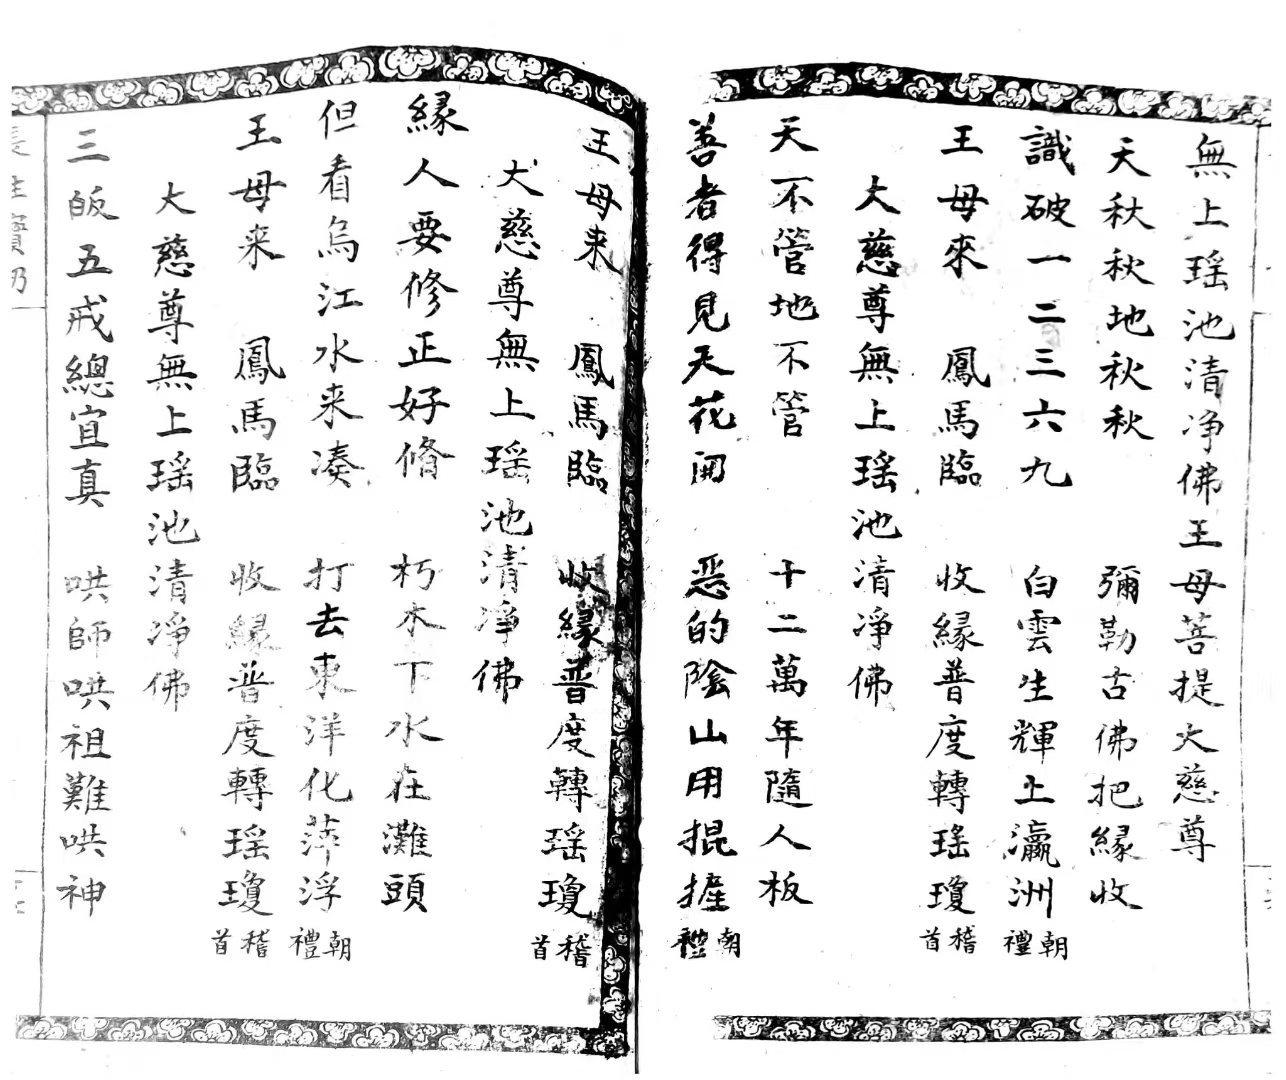 無上瑶池清净佛王母菩提大慈尊
天秋秋地秋秋 彌勒古佛把緣收
識破一二三六九 白雲生輝上瀛洲 朝禮
王母來 鳳馬臨 收緣普度轉瑶瓊 稽首
大慈尊無上瑶池清净佛
天不管地不管 十二萬年隨人板
善者得見天花開 恶的陰山用掍摧 朝禮
王母来 鳳馬臨 收緣普度轉瑶瓊 稽首
大慈尊無上瑶池清净佛
緣人要修正好脩 朽木下水在灘頭
但看烏江水来凑 打去東洋化萍浮 朝禮
王母来 鳳馬臨 收緣普度轉瑶瓊 稽首
大慈尊無上瑶池清净佛
三皈五戒總宜真 哄師哄祖難哄神